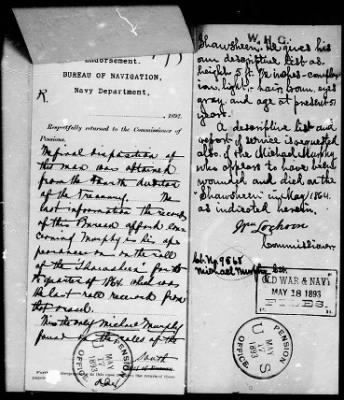 Endorsement.
BUREAU OF NAVIGATION,
Navy Department,
R
, 1892.
Respectfully returned to the Commissioner of
Pensions.
The final disposition of
this man was obtained
from the Fourth Auditor
of the Treasury. The
last information the records
of this Bureau afford con-
cerning Murphy is his ap-
pearance on the roll
of the "Shawsheen" for the
quarter of 1864 which was
the last roll received from
that vessel.
This the only Michael Murphy
found on the rolls of the
South
W. H. G.
Shawsheen. He gives his
own descriptive list as
height 5 ft. inches- complex-
ion, light, hair, brown, eyes
gray and age at present 51
years.
A descriptive list and
report of service is requested
also, of the Michael Murphy
who appears to have been
wounded and died on the
"Shawsheen" in May 1864.
as indicated herein.
Wm Lochren
Commissioner.
No 9568
Michael Murphy
OLD WAR & NAVY
MAY 18 1893
FILES
PENSION OFFICE
U S
MAY
17
1893
PENSION OFFICE
U S
MAY
17
1893